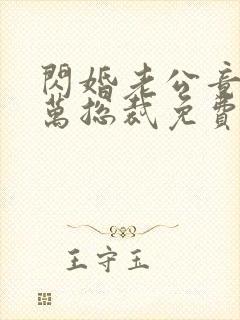 閃婚老公竟
萬總裁免費
王守玉